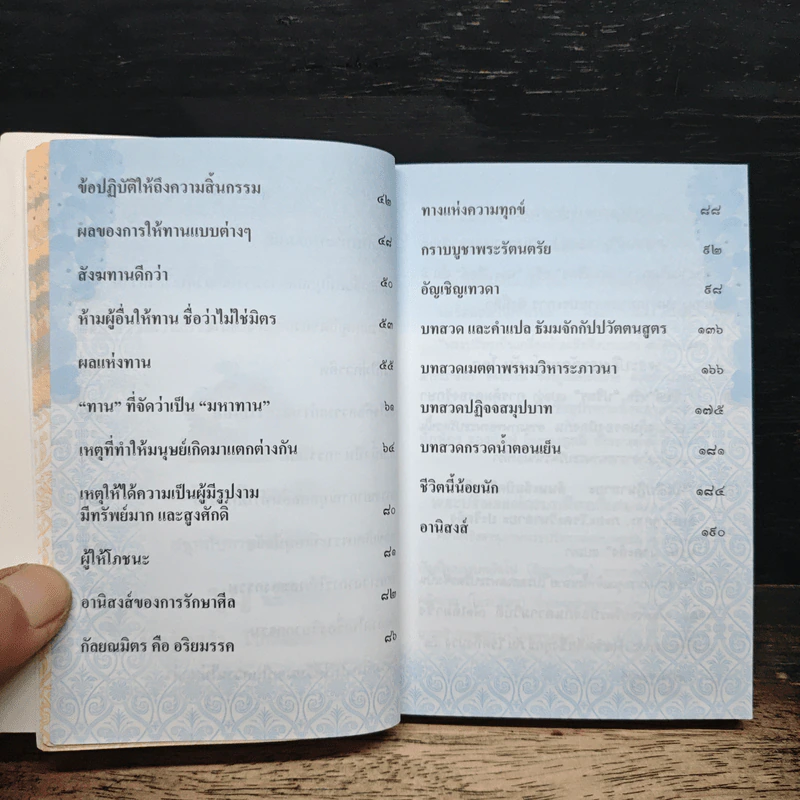 ข้อปฏิบัติให้ถึงความสิ้นกรรม ๔๒
ผลของการให้ทานแบบต่างๆ ๔๘
สังฆทานดีกว่า ๕๐
ห้ามผู้อื่นให้ทาน ชื่อว่าไม่ใช่มิตร ๕๓
ผลแห่งทาน ๕๕
“ทาน” ที่จัดว่าเป็น “มหาทาน” ๖๑
เหตุที่ทำให้มนุษย์เกิดมาแตกต่างกัน ๖๔
เหตุให้ได้ความเป็นผู้มีรูปงาม
มีทรัพย์มาก และสูงศักดิ์ ๘๐
ผู้ให้โภชนะ ๘๑
อานิสงส์ของการรักษาศีล ๘๒
กัลยณมิตร คือ อริยมรรค ๘๖
ทางแห่งความทุกข์ ๘๘
กราบบูชาพระรัตนตรัย ๙๒
อัญเชิญเทวดา ๙๘
บทสวด และคำแปล ธัมมจักกัปปวัตตนสูตร ๑๓๖
บทสวดเมตตาพรหมวิหาระภาวนา ๑๖๖
บทสวดปฏิจจสมุปบาท ๑๗๕
บทสวดกรวดน้ำตอนเย็น ๑๘๑
ชีวิตนี้น้อยนัก ๑๘๔
อานิสงส์ ๑๙๐